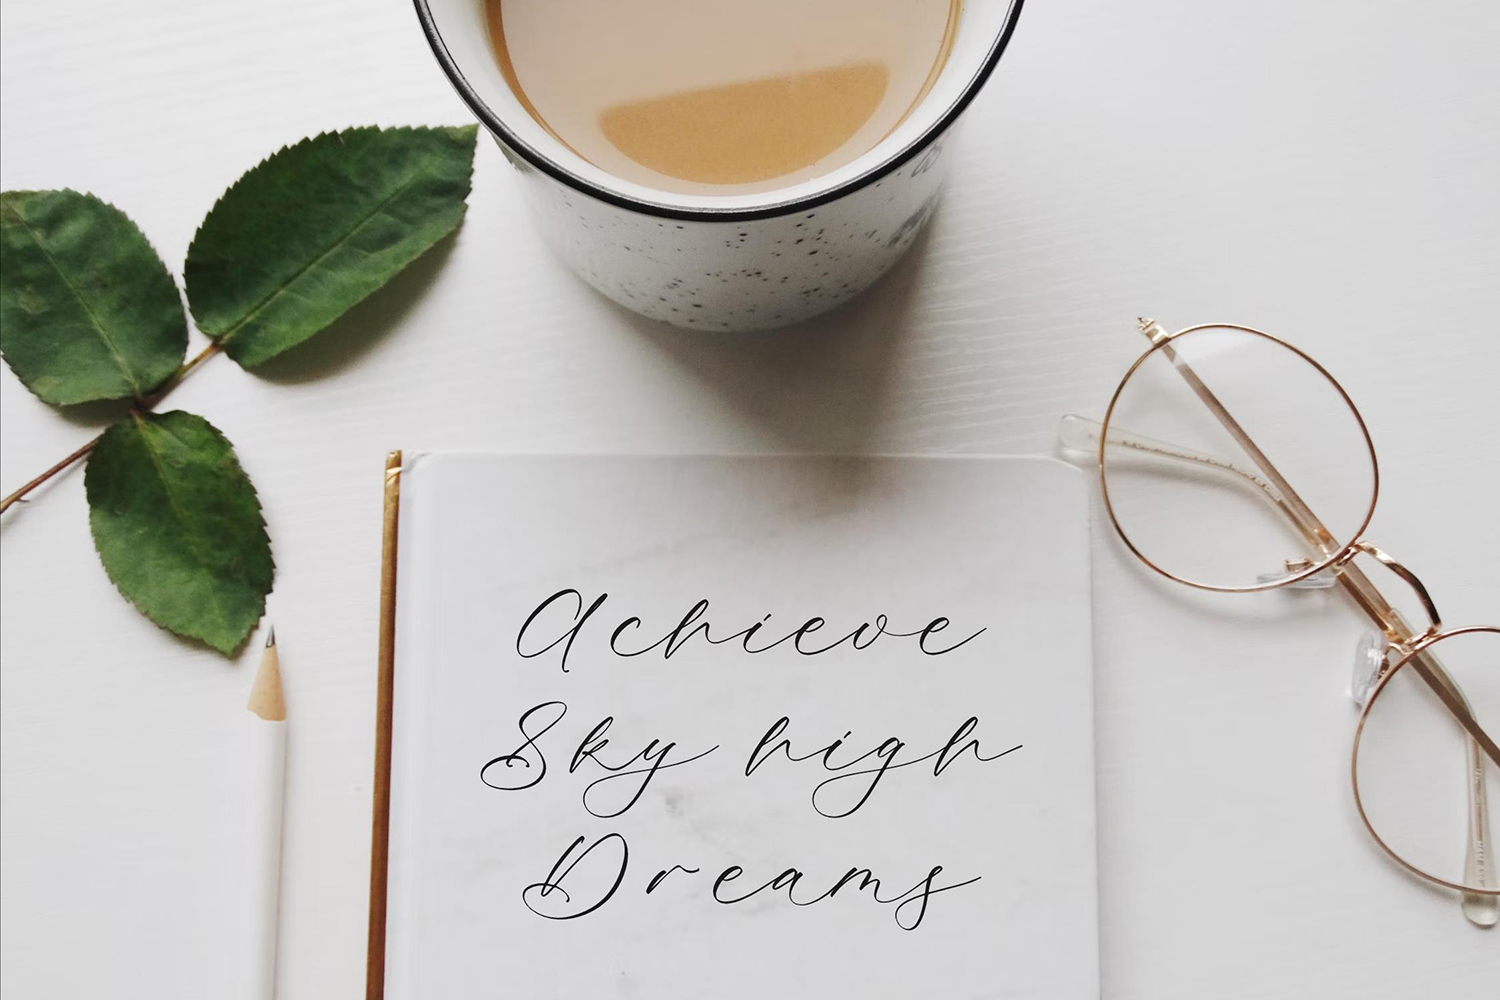 Achieve
Sky high
Dreams